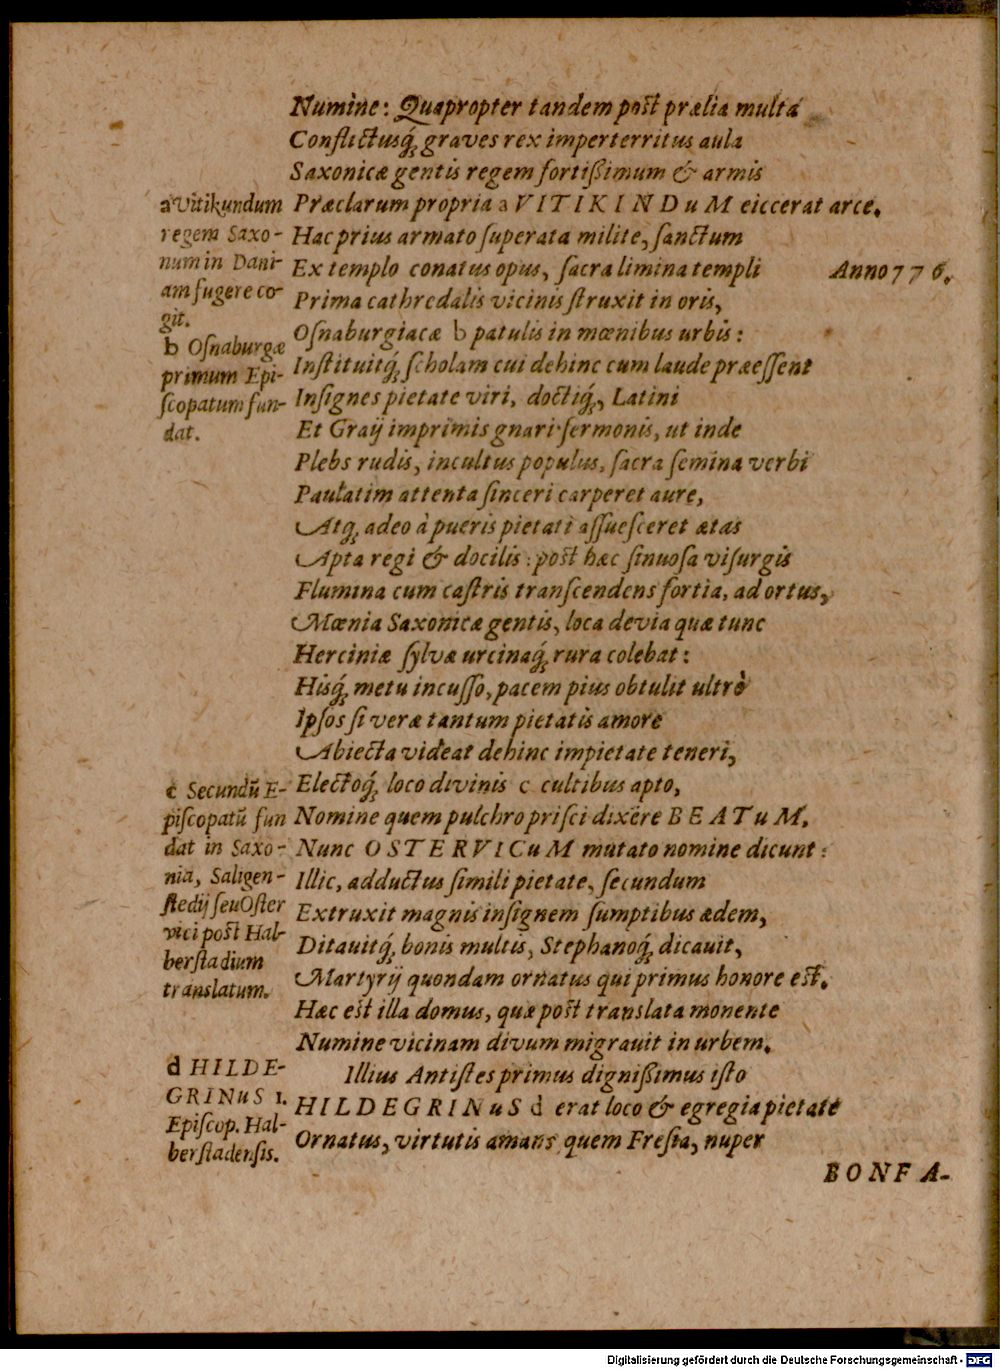 Numine: Quapropter tandem post prælia multa
Conflictusq́; graves rex imperterritus aula
Saxonicæ gentis regem fortißimum & armis
Præclarum propria a VITIKINDuM eiccerat arce.
Hac prius armato ſuperata milite, ſanctum
Ex templo conatus opus, ſacra limina templi
Anno 776.
Prima cathredalis vicinis ſtruxit in oris,
Oſnaburgiacæ b patulis in mœnibus urbis:
Inſtituitq́; ſcholam cui dehinc cum laude præeſſent
Inſignes pietate viri, doctiq́;, Latini
Et Graij imprimis gnari ſermonis, ut inde
Plebs rudis, incultus populus, ſacra ſemina verbi
Paulatim attenta ſinceri carperet aure,
Atq; adeo à pueris pietati aſſueſceret ætas
Apta regi & docilis: post hæc ſinuoſa viſurgis
Flumina cum caſtris tranſcendens fortia, ad ortus,
Mœnia Saxonicæ gentis, loca devia quæ tunc
Herciniæ ſylvæ urcinaq́; rura colebat:
Hisq́; metu incuſſo, pacem pius obtulit ultrò
Ipſos ſi veræ tantum pietatis amore
Abiecta videat dehinc impietate teneri,
Electoq́; loco divinis c cultibus apto,
Nomine quem pulchro priſci dixêre BEATuM,
Nunc OSTERVICuM mutato nomine dicunt:
Illic, adductus ſimili pietate, ſecundum
Extruxit magnis inſignem ſumptibus ædem,
Ditauitq́; bonis multis, Stephanoq́; dicauit,
Martyrij quondam ornatus qui primus honore est.
Hæc est illa domus, quæ post translata monente
Numine vicinam divum migrauit in urbem.
Illius Antiſtes primus dignißimus iſto
HILDEGRINuS d erat loco & egregia pietate
Ornatus, virtutis amans quem Freſia, nuper
BONFA-
a Vitikundum
regem Saxo-
num in Dani-
am fugere co-
git.
b Oſnaburgæ
primum Epi-
ſcopatum fun-
dat.
c Secundũ E-
piſcopatũ fun
dat in Saxo-
nia, Saligen-
ſtedij ſeu Oſter
vici post Hal-
berſtadium
translatum.
d HILDE-
GRINuS 1.
Epiſcop. Hal-
berſtadenſis.
Digitalisierung gefördert durch die Deutsche Forschungsgemeinschaft - DFG